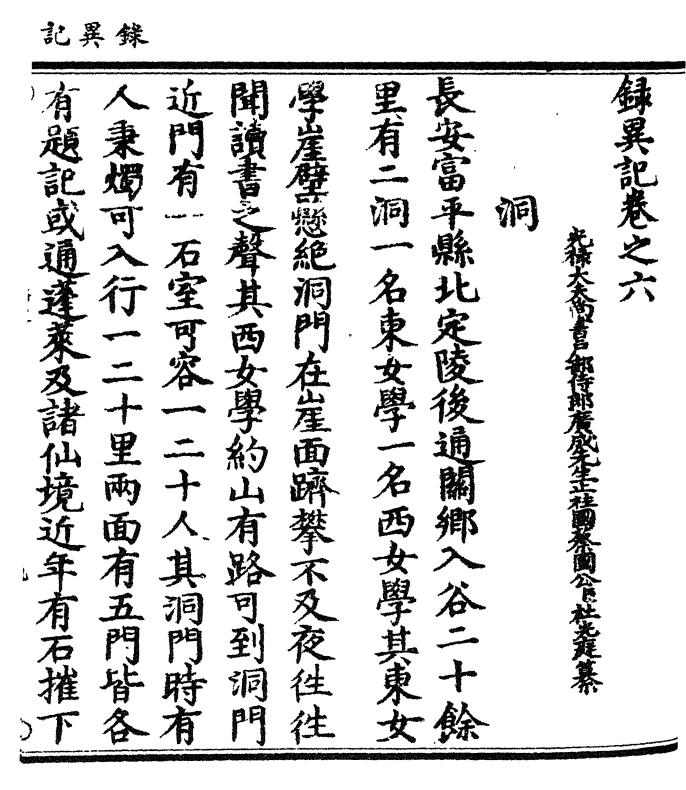 錄異記
録異記卷之六
光祿大夫尚書戶部侍郎廣成先生上柱國蔡國公臣杜光庭纂
洞
長安富平縣北定陵後通關鄉入谷二十餘
里有二洞一名東女學一名西女學其東女
學崖壁懸絕洞門在崖面躋攀不及夜往往
聞讀書之聲其西女學約山有路可到洞門
近門有一石室可容一二十人其洞門時有
人秉燭可入行一二十里兩面有五門皆各
有題記或通蓬萊及諸仙境近年有石摧下